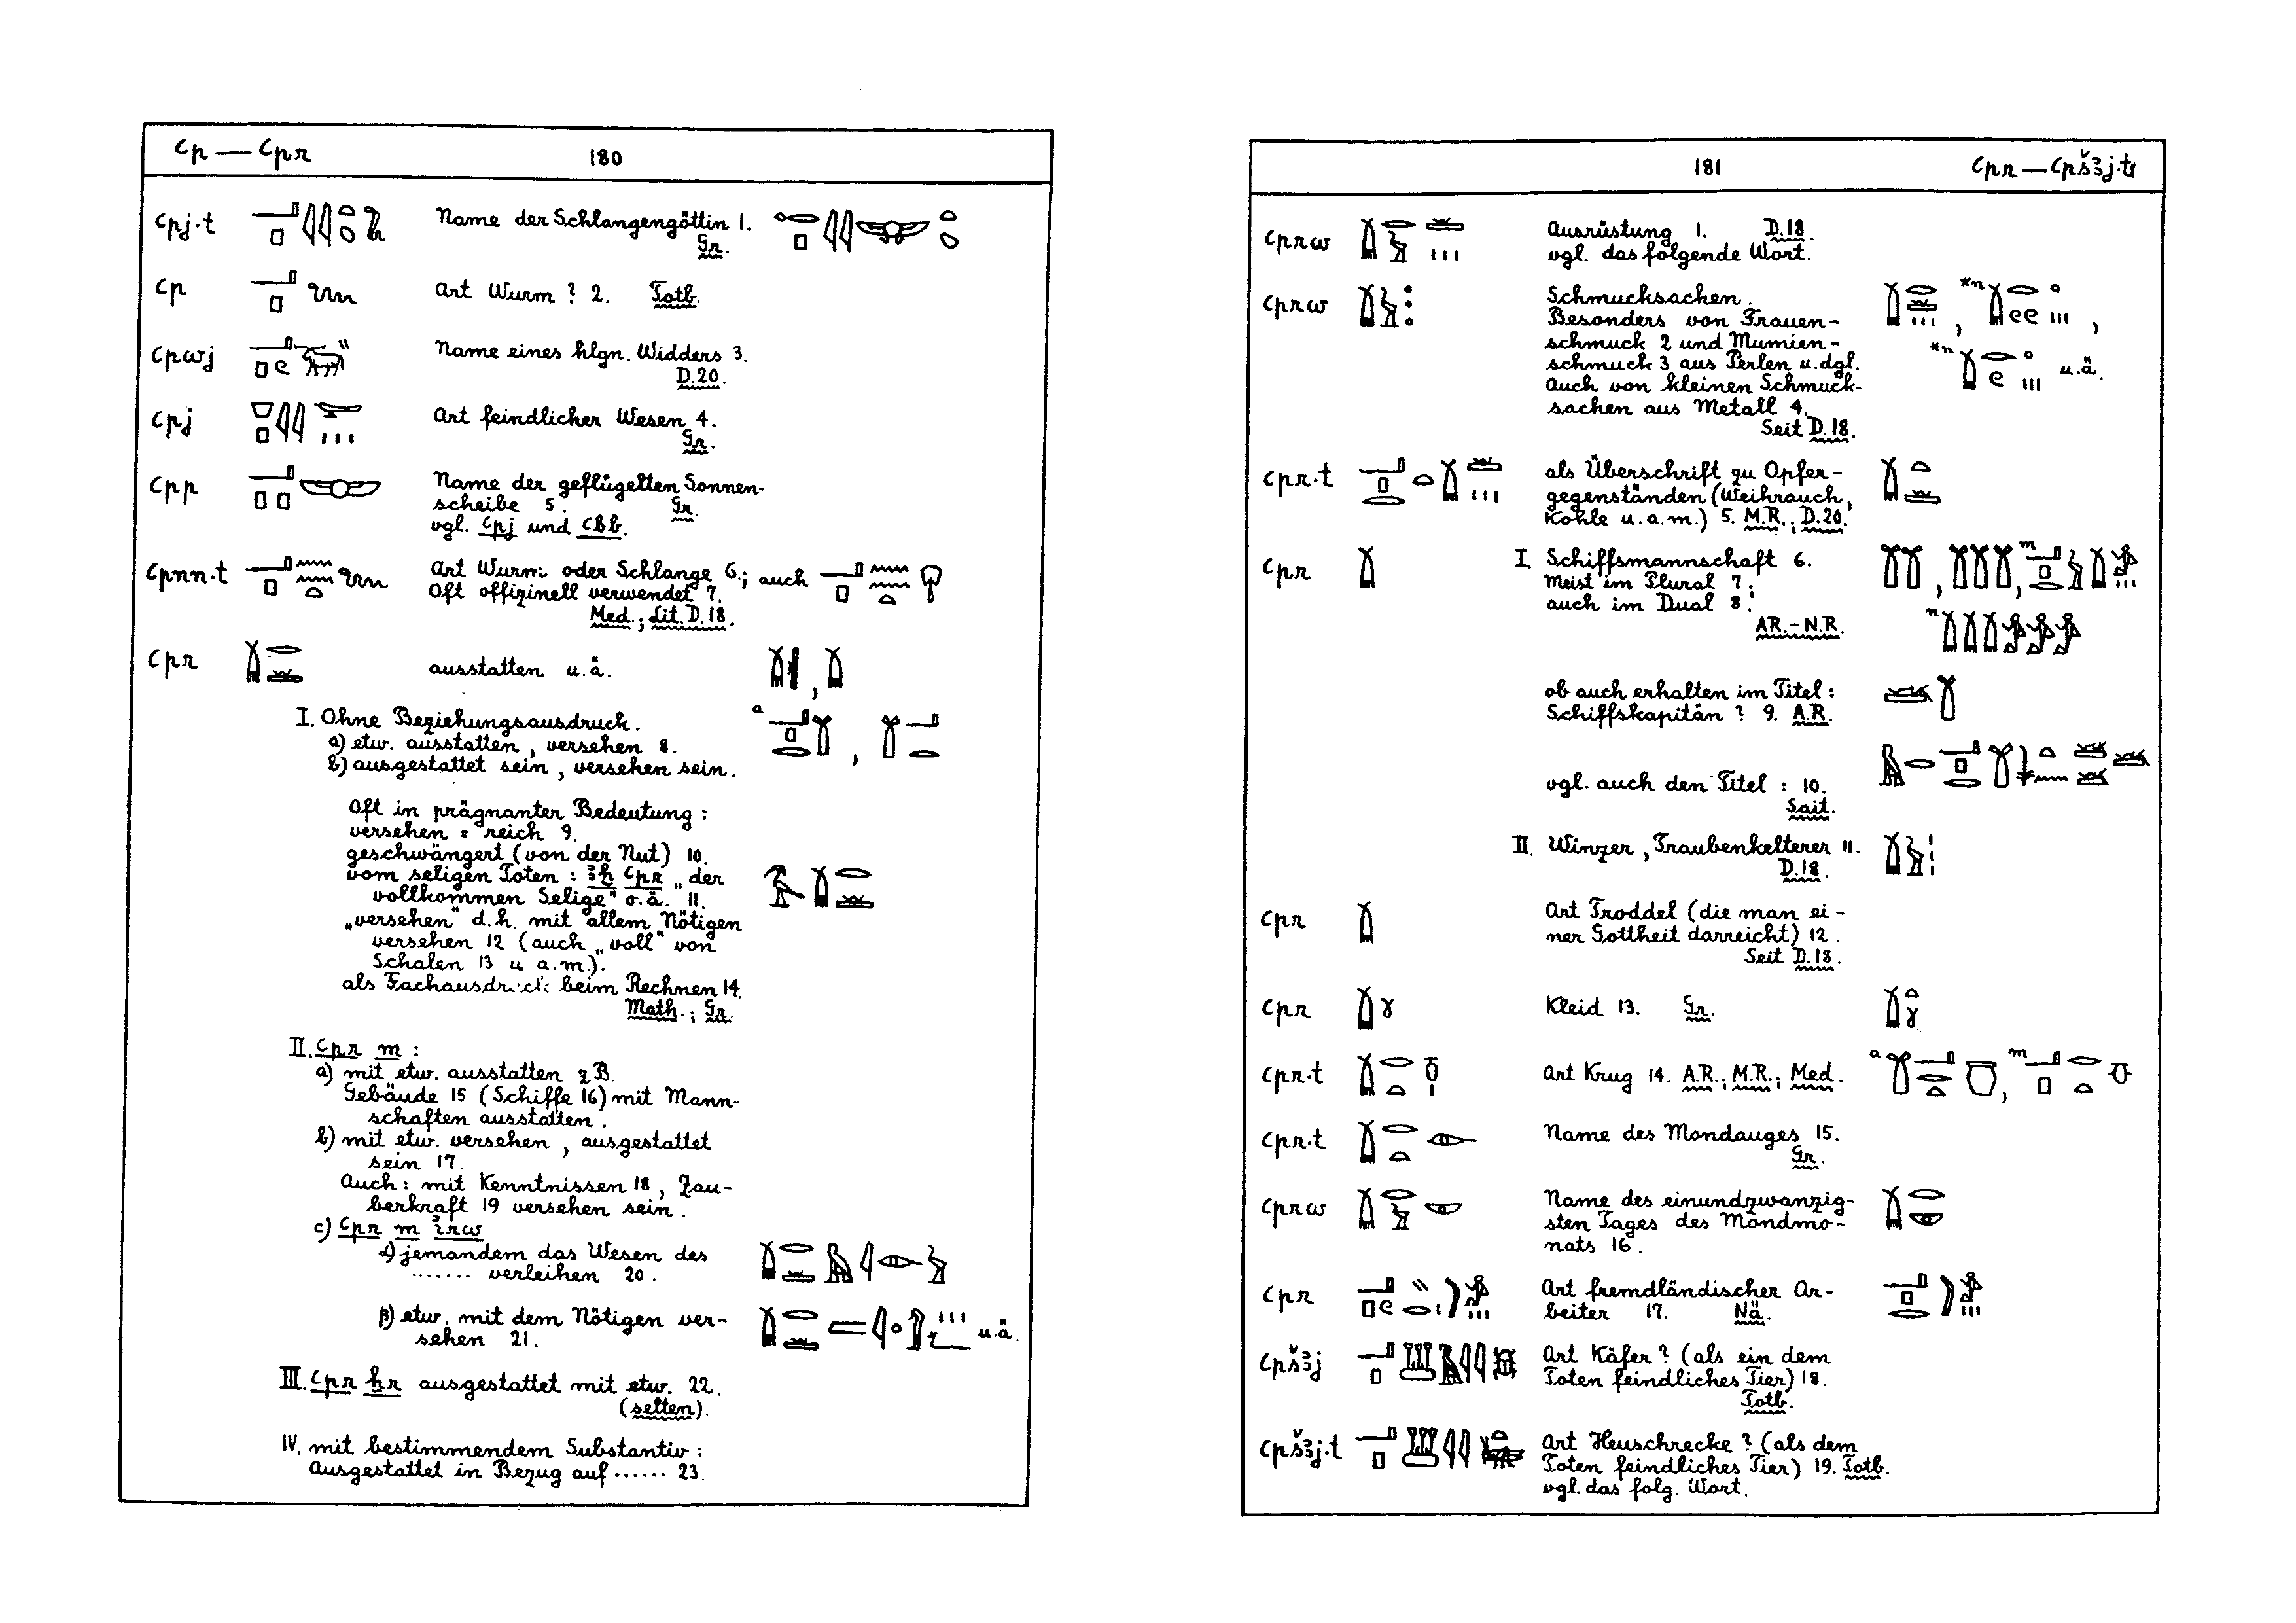 ꜥp — ꜥpr 180
ꜥpj.t Name der Schlangengöttin 1.
Gr.
ꜥp Art Wurm ? 2. Totb.
ꜥpwj Name eines hlgn. Widders 3.
D.20.
ꜥpj Art feindlicher Wesen 4.
Gr.
ꜥpp Name der geflügelten Sonnen-
scheibe 5. Gr.
vgl. ꜥpj und ꜥbb.
ꜥpnn.t Art Wurm oder Schlange 6.; auch
Oft offizinell verwendet 7.
Med.; Lit. D.18.
ꜥpr ausstatten u.ä.
I. Ohne Beziehungsausdruck. a
a) etw. ausstatten, versehen 8.
b) ausgestattet sein, versehen sein.
Oft in prägnanter Bedeutung:
versehen = reich 9.
geschwängert (von der Nut) 10.
vom seligen Toten: ꜣḫ ꜥpr „der
vollkommen Selige“ o.ä. 11.
„versehen“ d.h. mit allem Nötigen
versehen 12 (auch „voll“ von
Schalen 13 u.a.m.).
als Fachausdruck beim Rechnen 14.
Math.; Gr.
II. ꜥpr m :
a) mit etw. ausstatten z.B.
Gebäude 15 (Schiffe 16) mit Mann-
schaften ausstatten.
b) mit etw. versehen, ausgestattet
sein 17.
Auch: mit Kenntnissen 18, Zau-
berkraft 19 versehen sein.
c) ꜥpr m irw
α) jemandem das Wesen des
....... verleihen 20.
β) etw. mit dem Nötigen ver-
sehen 21. u.ä.
III. ꜥpr ḥr ausgestattet mit etw. 22.
(selten).
IV. mit bestimmendem Substantiv:
Ausgestattet in Bezug auf ...... 23.
181 ꜥpr — ꜥpšꜣj.t
ꜥprw Ausrüstung 1. D.18.
vgl. das folgende Wort.
ꜥprw Schmucksachen. *n
Besonders von Frauen-
schmuck 2 und Mumien-
schmuck 3 aus Perlen u.dgl. *n u.ä.
Auch von kleinen Schmuck-
sachen aus Metall 4.
Seit D.18.
ꜥpr.t als Überschrift zu Opfer-
gegenständen (Weihrauch,
Kohle u.a.m.) 5. M.R.; D.20.
ꜥpr I. Schiffsmannschaft 6. m
Meist im Plural 7;
auch im Dual 8.
AR.-N.R. n
ob auch erhalten im Titel:
Schiffskapitän ? 9. A.R.
vgl. auch den Titel : 10.
Sait.
II. Winzer, Traubenkelterer 11.
D.18.
ꜥpr Art Troddel (die man ei-
ner Gottheit darreicht) 12.
Seit D.18.
ꜥpr Kleid 13. Gr.
ꜥpr.t Art Krug 14. A.R.; M.R.; Med. a m
ꜥpr.t Name des Mondauges 15.
Gr.
ꜥprw Name des einundzwanzig-
sten Tages des Mondmo-
nats 16.
ꜥpr Art fremdländischer Ar-
beiter 17. Nä.
ꜥpšꜣj Art Käfer ? (als ein dem
Toten feindliches Tier) 18.
Totb.
ꜥpšꜣj.t Art Heuschrecke ? (als dem
Toten feindliches Tier) 19. Totb.
vgl. das folg. Wort.